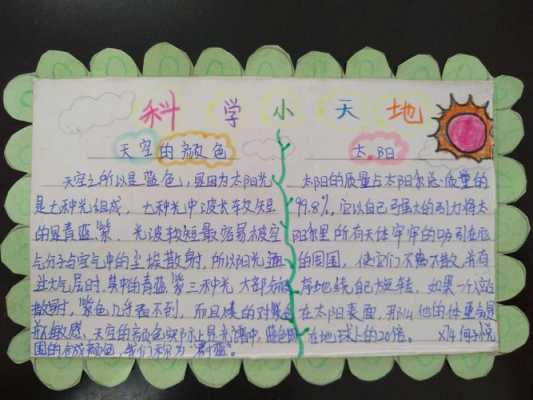 科学小天地
天空的颜色
天空之所以是蓝色,是因为太阳光
是七种光组成,七种光中波长较短
的是青蓝紫,光波较短最容易被空
气分子与空气中的尘埃散射,所以阳光
过大气层时,其中的青蓝紫三种光大部分
散射,紫色几乎看不到,而且
敏感,天空的颜色实际上是光谱中蓝色
的合成颜色,我们称为"蔚蓝"。
太阳
太阳的质量占太阳系总质量的
99.8%,它以自己强大的引力将太
阳系里所有天体牢牢的吸引在
的周围,使它们不离不散,并有
地绕自己旋转,如果一个人站
在太阳表面,那么他的体重会是
在地球上的20倍。